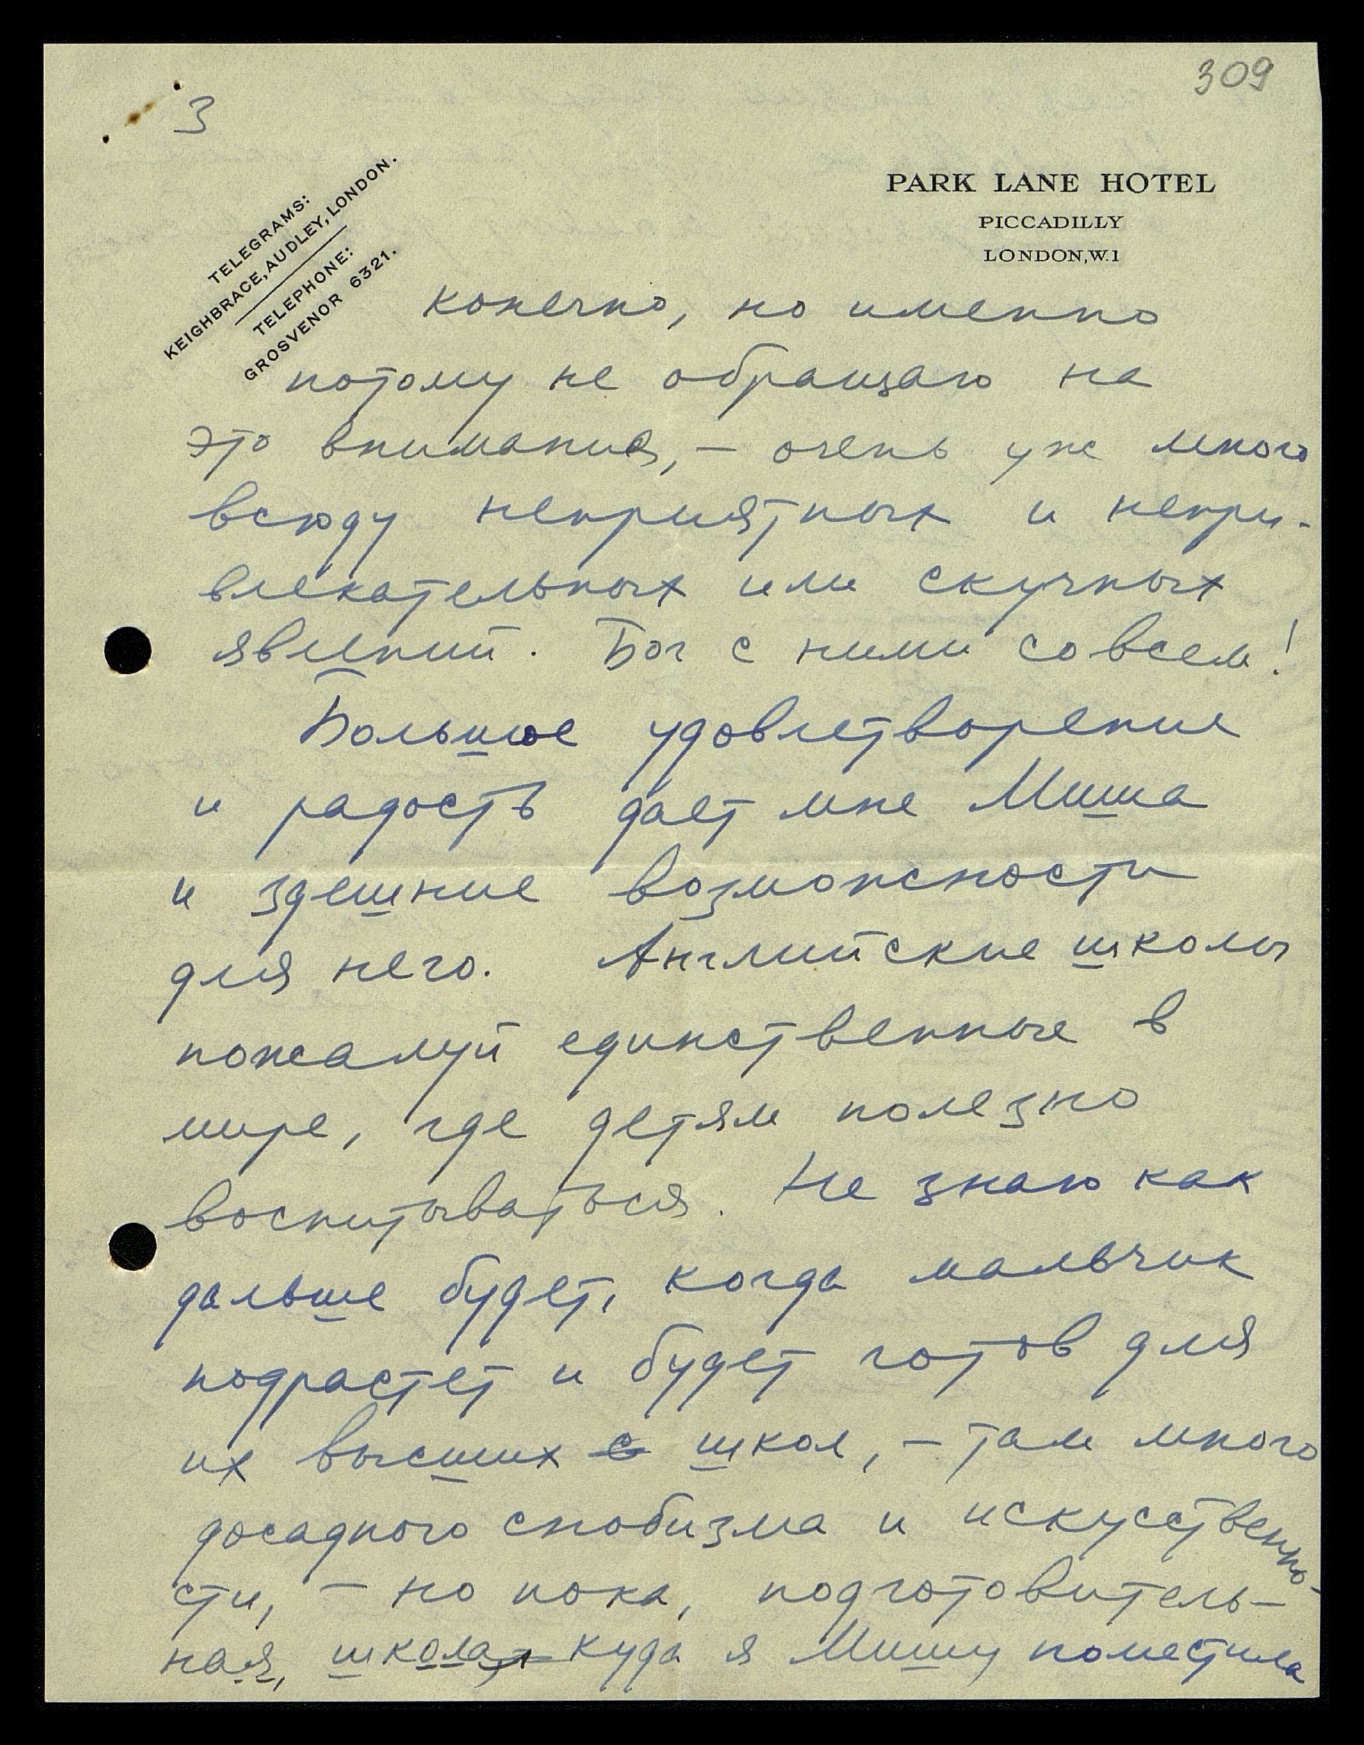 309
3
TELEGRAMS:
KEIGHBRACE, AUDLEY, LONDON.
TELEPHONE:
GROSVENOR 6321.
PARK LANE HOTEL
PICCADILLY
LONDON, W.1
конечно, но именно
потому не обращаю на
это внимания, – очень уж много
всюду неприятных и непри-
влекательных или скучных
явлений. Бог с ними совсем!
Большое удовлетворение
и радость дает мне Миша
и здешние возможности
для него. Английские школы
пожалуй единственные в
мире, где детям полезно
воспитываться. Не знаю как
дальше будет, когда мальчик
подрастет и будет готов для
их высших с школ, – там много
досадного снобизма и искусственно-
сти, – но пока, подготовитель-
ная, школа, куда я Мишу поместила